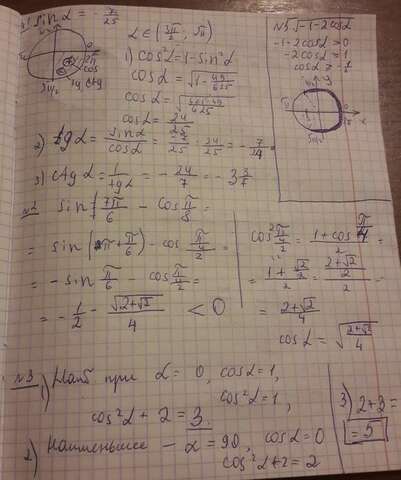 sin α = - 7/25
α ∈ (3π/2; 2π)
1) cos²α = 1 - sin²α
cos α = √(1 - 49/625)
cos α = √((625-49)/625)
cos α = 24/25
2) tg α = sin α / cos α = - 7/25 · 24/25 = - 7/24
3) ctg α = 1/tg α = - 24/7 = - 3 3/7
№5 √(-1-2cos α)
-1-2cos α > 0
-2cos α = 1
cos α > - 1/2
№2 sin 7π/6 - cos π/8 =
= sin(π + π/6) - cos (π/4)/2 =
= - sin π/6 - cos (π/4)/2 =
= - 1/2 - √(2+√2)/4 < 0
cos² (π/4)/2 = (1 + cos π/4)/2 =
= (1 + √2/2)/2 = ((2+√2)/2)/2 =
= (2+√2)/4
cos α = √((2+√2)/4)
№3 1) Наиб при α = 0, cos α = 1,
cos²α = 1,
cos²α + 2 = 3
2) Наименьшее - α = 90, cos α = 0
cos²α + 2 = 2
3) 2+3 =
= 5